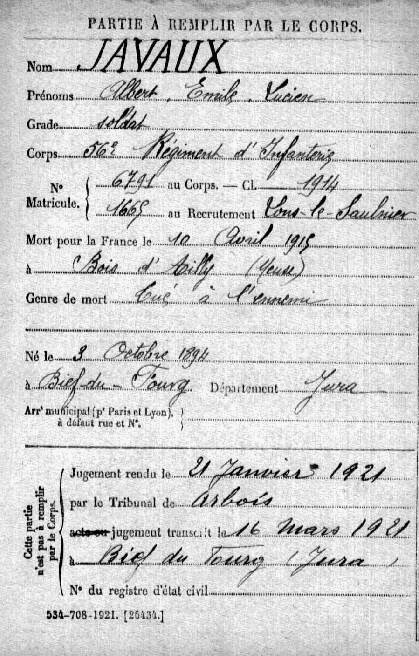 PARTIE À REMPLIR PAR LE CORPS.
Nom JAVAUX
Prénoms Albert, Emile, Lucien
Grade soldat
Corps 56e Régiment d'Infanterie
N° Matricule. 6791 au Corps. — Cl. 1914
1665 au Recrutement Lons-le-Saulnier
Mort pour la France le 10 Avril 1915
à Bois d'Ailly (Meuse)
Genre de mort Tué à l'ennemi
Né le 3 Octobre 1894
à Bief-du-Fourg Département Jura
Arrt municipal (pr Paris et Lyon),
à défaut rue et N°.
Cette partie n'est pas à remplir par le Corps.
Jugement rendu le 21 Janvier 1921
par le Tribunal de Arbois
acte ou jugement transcrit le 16 mars 1921
à Bief du Fourg (Jura)
N° du registre d'état civil
534-708-1921. [26434.]